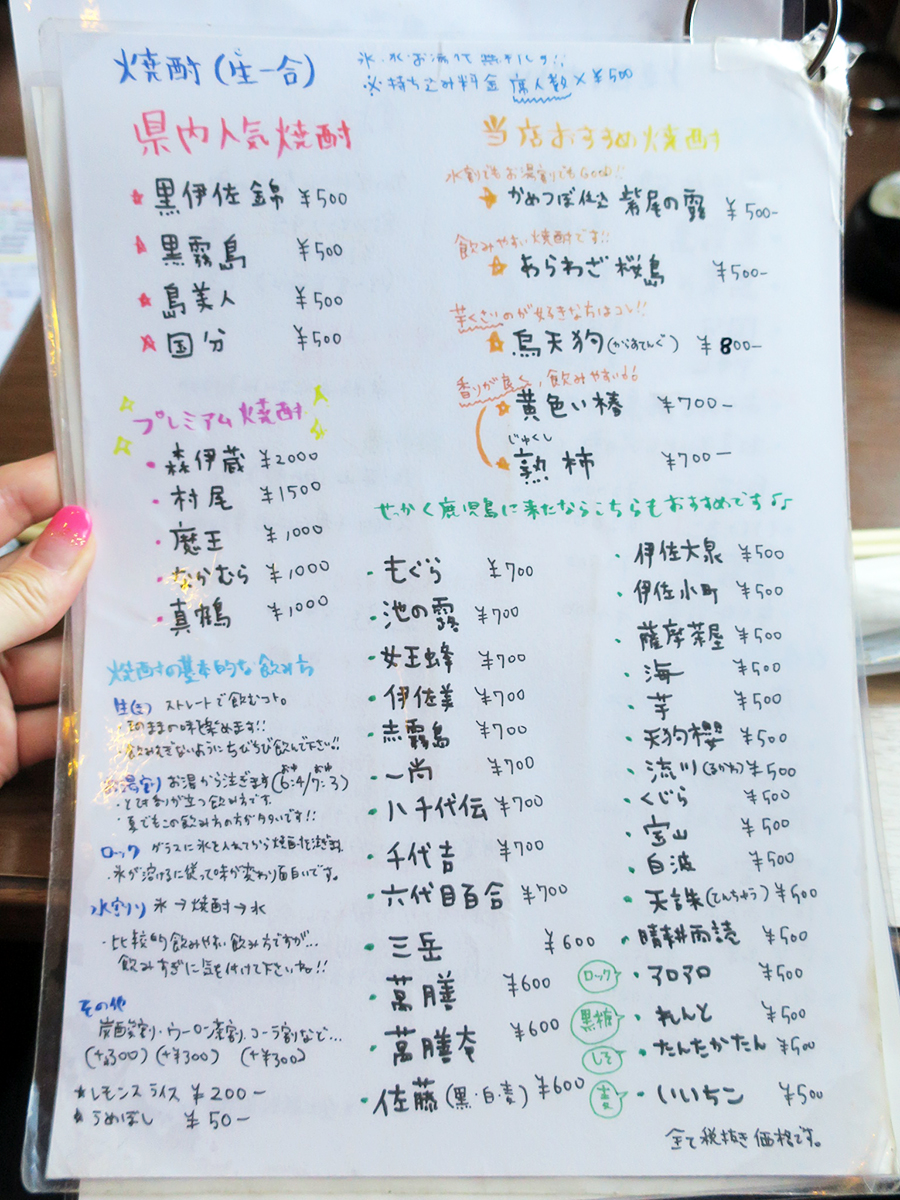 焼酎(生一合)
氷・水・お湯
※持ち込み料金 席人数×¥500
県内人気焼酎
★ 黒伊佐錦 ¥500
★ 黒霧島 ¥500
★ 島美人 ¥500
★ 国分 ¥500
プレミアム焼酎
・森伊蔵 ¥2000
・村尾 ¥1500
・魔王 ¥1000
・なかむら ¥1000
・真鶴 ¥1000
焼酎の基本的な飲み方
生(き) ストレートで飲むコト。
・そのままの味を楽めます!!
・飲みすぎないようにちびちび飲んで下さい!!
お湯割り お湯から注ぎます(6:4/7:3)
・とびきりが立つ飲み方です。
・夏でもこの飲み方の方が多いです!!
ロック グラスに氷を入れてから焼酎を注ぎます。
・氷が溶けるに従って味が変わり面白いです。
水割り 氷→焼酎→水
・比較的飲みやすい飲み方ですが…
飲みすぎに気を付けて下さいね!!
その他
炭酸割り・ウーロン茶割り・コーラ割など…
(+¥300) (+¥300) (+¥300)
★レモンスライス ¥200-
★うめぼし ¥50-
当店おすすめ焼酎
水割でもお湯割でもGood!!
☆かめつぼ仕込 紫尾の露 ¥500-
飲みやすい焼酎です!!
☆あらわざ桜島 ¥500-
芋くさいのが好きな方はコレ!!
☆烏天狗(からすてんぐ) ¥800-
香りが良く、飲みやすい!!
☆黄色い椿 ¥700-
じゅくし
☆熟柿 ¥700-
せっかく鹿児島に来たならこちらもおすすめです♪
・もぐら ¥700
・池の露 ¥700
・女王蜂 ¥700
・伊佐美 ¥700
・赤霧島 ¥700
・一尚 ¥700
・八千代伝 ¥700
・千代吉 ¥700
・六代目百合 ¥700
・三岳 ¥600
・萬膳 ¥600
・萬膳庵 ¥600
・佐藤(黒・白・麦) ¥600
・伊佐大泉 ¥500
・伊佐小町 ¥500
・薩摩茶屋 ¥500
・海 ¥500
・芋 ¥500
・天狗櫻 ¥500
・流川(るかわ) ¥500
・くじら ¥500
・宝山 ¥500
・白波 ¥500
・天誅(てんちゅう) ¥500
・晴耕雨読 ¥500
ロック ・フロフロ ¥500
黒糖 ・れんと ¥500
しそ ・たんたかたん ¥500
麦 ・いいちこ ¥500
全て税抜き価格です。